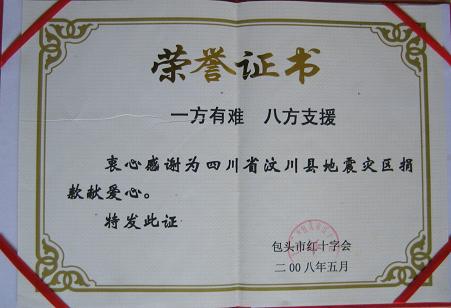 荣誉证书
一方有难 八方支援
衷心感谢为四川省汶川县地震灾区捐
款献爱心。
特发此证
包头市红十字会
二00八年五月